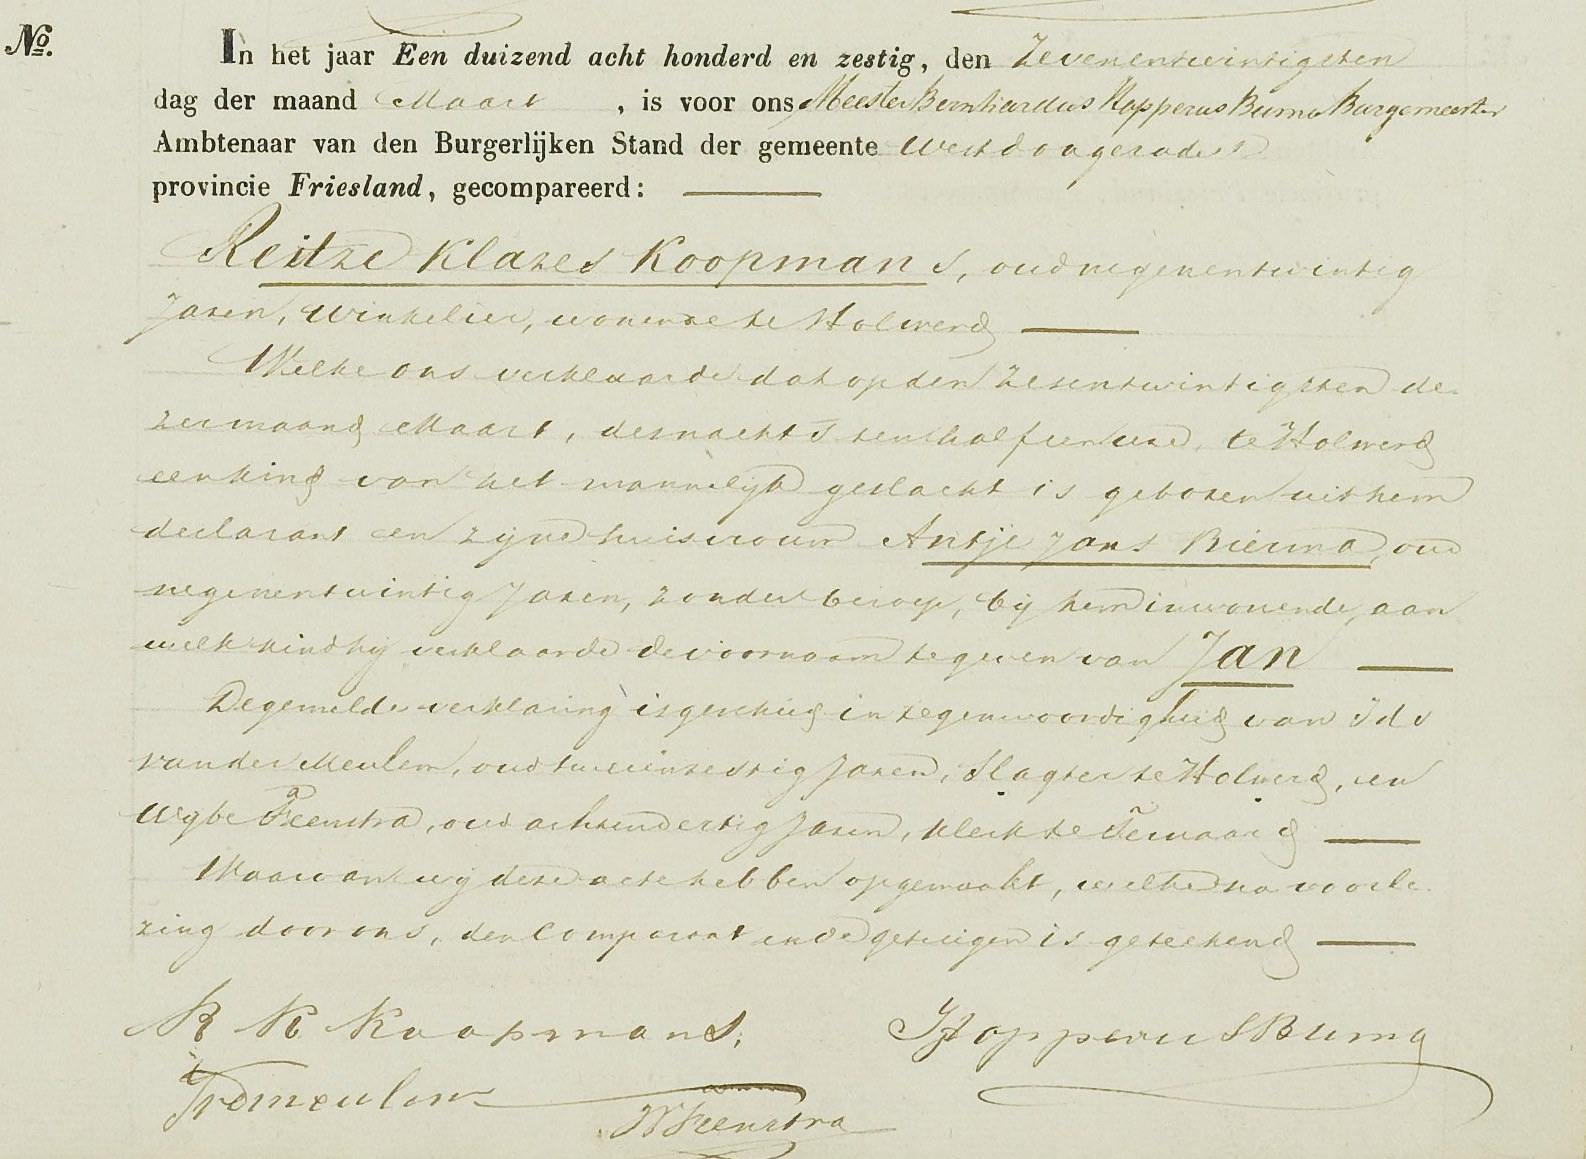 No.
In het jaar Een duizend acht honderd en zestig, den Zevenentwintigsten
dag der maand Maart , is voor ons Meester Bernhardus Hopperus Buma Burgemeester
Ambtenaar van den Burgerlijken Stand der gemeente Westdongeradeel
provincie Friesland, gecompareerd:
Reitze Klazes Koopmans, oud negenentwintig
Jaren, Winkelier, wonende te Holwerd
Welke ons verklaarde dat op den zesentwintigsten de-
zer maand Maart, des nachts ten half een ure, te Holwerd
een kind van het mannelijk geslacht is geboren uit hem
declarant en zijne huisvrouw Antje Jans Bierma, oud
negenentwintig Jaren, zonder beroep, bij hem inwonende, aan
welk kind hij verklaarde de voornaam te geven van Jan
De gemelde verklaring is geschied in tegenwoordigheid van Ids
van der Meulen, oud tweeenzestig Jaren, Slagter te Holwerd, en
Wybe Feenstra, oud achtendertig Jaren, klerk te Ternaard
Waarvan wij deze acte hebben opgemaakt, welke na voorle-
zing door ons, den Comparant en de getuigen is geteekend
R K Koopmans,
Hopperus Buma
IvdMeulen
W Feenstra